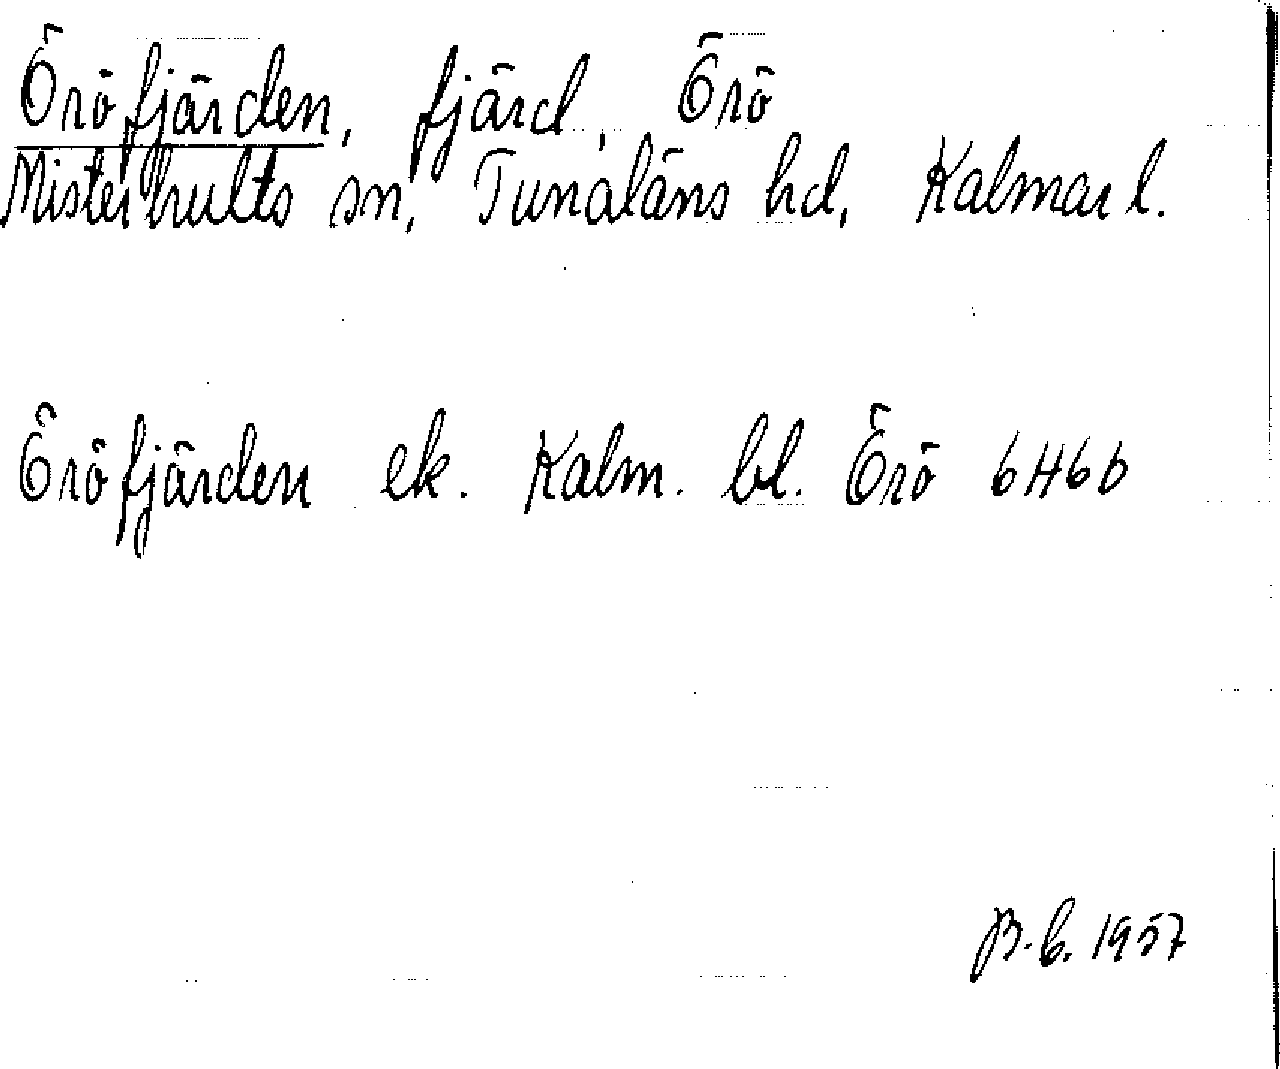 Öröfjärden, fjärd, Örö
Misterhults sn, Tunaläns hd, Kalmar l.
Öröfjärden ek. Kalm. bl. Örö 6H6b
B.b. 1957